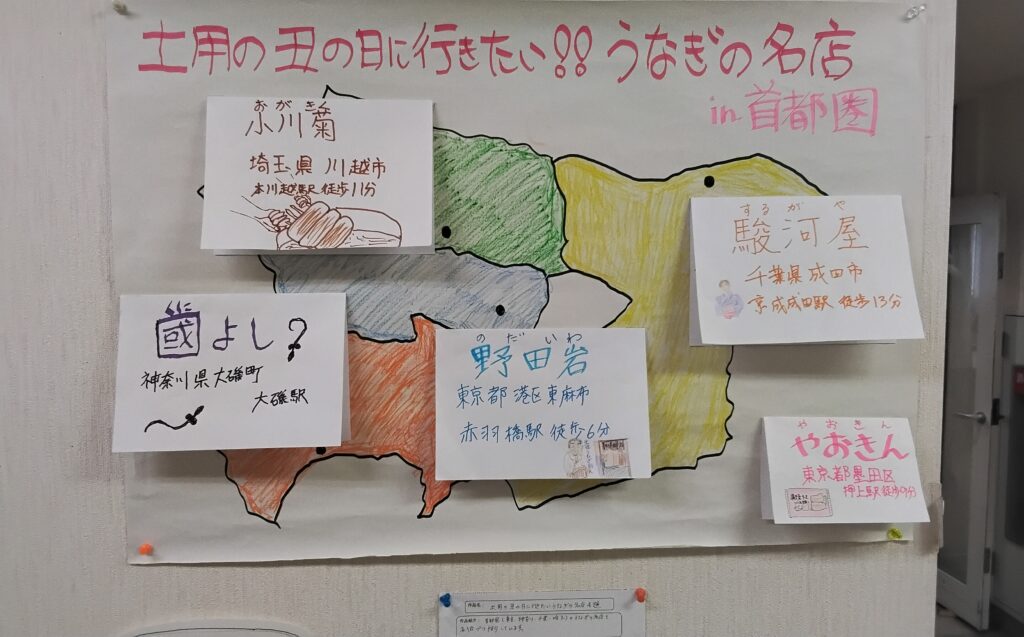 土用の丑の日に行きたい!! うなぎの名店
in 首都圏
おがきく
小川菊
埼玉県 川越市
本川越駅 徒歩11分
するがや
駿河屋
千葉県成田市
京成成田駅 徒歩13分
國よし
神奈川県大磯町
大磯駅
のだいわ
野田岩
東京都港区東麻布
赤羽橋駅 徒歩6分
やおきん
やおきん
東京都墨田区
押上駅徒歩9分
土用の丑の日に行きたいうなぎの名店